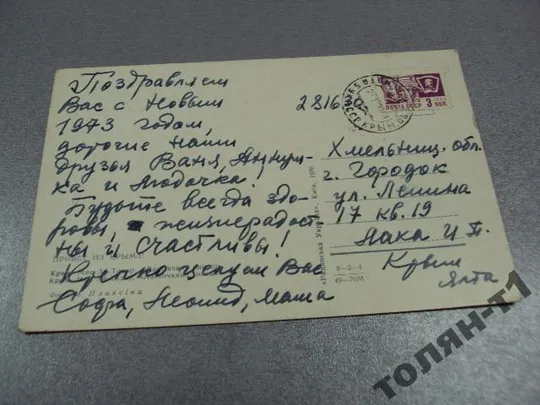 Поздравляем
Вас с Новым
1973 годом,
дорогие наши
друзья Ваня, Аннуш-
ка и Людочка!
Будьте всегда здо-
ровы, жизнерадост-
ны и счастливы!
Крепко целуем Вас
Софа, Леонид, Маша
ПРИВЕТ ИЗ КРЫМА
281600
ПОЧТА СССР
3 КОП
Хмельниц. обл.
г. Городок
ул. Ленина
17 кв. 19
И. П.
Крым
Ялта
«Радянська Україна», Київ, 1970
ТОЛЯН-Т1